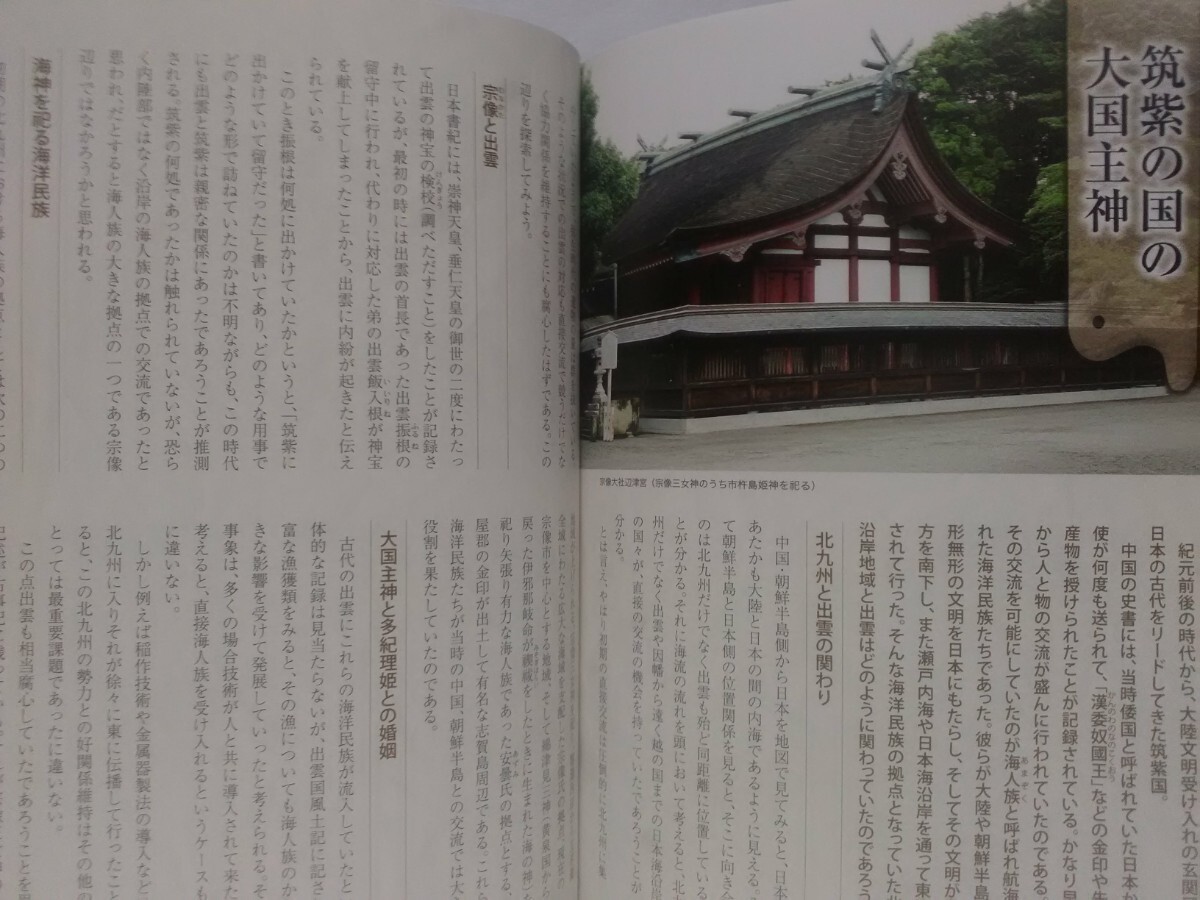 筑紫の国の
大国主神
宗像大社辺津宮（宗像三女神のうち市杵島姫神を祀る）
紀元前後の時代から、大陸文明受け入れの玄関
日本の古代をリードしてきた筑紫国。
中国の史書には、当時倭国と呼ばれていた日本か
使が何度も送られて、「漢委奴國王」などの金印や生
産物を授けられたことが記録されている。かなり早
から人と物の交流が盛んに行われていたのである。
その交流を可能にしていたのが海人族と呼ばれ航海
れた海洋民族たちであった。彼らが大陸や朝鮮半島
形無形の文明を日本にもたらし、そしてその文明が
方を南下し、また瀬戸内海や日本海沿岸を通って東
されて行った。そんな海洋民族の拠点となっていた北
沿岸地域と出雲はどのように関わっていたのであろう
北九州と出雲の関わり
中国・朝鮮半島側から日本を地図で見てみると、日本
あたかも大陸と日本の間の内海であるように見える。
て朝鮮半島と日本側の位置関係を見ると、そこに向き合
のは北九州だけでなく出雲も殆ど同距離に位置している
とが分かる。それに海流の流れを頭において考えると、北
州だけでなく出雲や因幡から遠く越の国までの日本海沿岸
の国々が、直接の交流の機会を持っていたであろうことが
分かる。
とは言え、やは
初期の直接交流は圧倒的に北九州に集
そのような
く協力関係を維持することにも腐心したはずである。この
辺りを探索してみよう。
宗像と出雲
日本書紀には、崇神天皇、垂仁天皇の御世の二度にわたっ
て出雲の神宝の検校（調べただすこと）をしたことが記録さ
れているが、最初の時には出雲の首長であった出雲振根の
留守中に行われ、代わりに対応した弟の出雲飯入根が神宝
を献上してしまったことから、出雲に内紛が起きたと伝え
られている。
このとき振根は何処に出かけていたかというと、「筑紫に
出かけていて留守だった」と書いてあり、どのような用事で
どのような形で訪ねていたのかは不明ながらも、この時代
にも出雲と筑紫は親密な関係にあったであろうことが推測
される。筑紫の何処であったかは触れられていないが、恐ら
く内陸部ではなく沿岸の海人族の拠点での交流であったと
思われ、だとすると海人族の大きな拠点の一つである宗像
辺りではなかろうかと思われる。
海神を祀る海洋民族
宗像市を中心とする地域、そして綿津見三神（黄泉国から
戻った伊邪那岐命が禊祓をしたときに生まれた海の神）を
祀り矢張り有力な海人族であった安曇氏の拠点とする、
屋郡の金印が出土して有名な志賀島周辺である。これら
海洋民族たちが当時の中国、朝鮮半島との交流では大
役割を果たしていたのである。
大国主神と多紀理姫との婚姻
古代の出雲にこれらの海洋民族が流入していたと
体的な記録は見当たらないが、出雲国風土記に記さ
富な漁獲類をみると、その漁についても海人族のか
きな影響を受けて発展していったと考えられる。そ
事象は、多くの場合技術が人と共に導入されて来た
考えると、直接海人族を受け入れるというケースも
に違いない。
しかし例えば稲作技術や金属器製法の導入など
北九州に入りそれが徐々に東に伝播して行ったこと
ると、この北九州の勢力との好関係維持はその他の
とっては最重要課題であったに違いない。
この点出雲も相当腐心していたであろうことを思